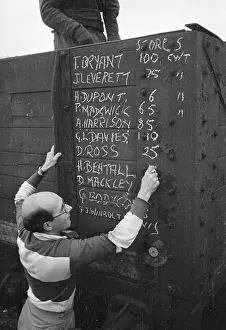 SCORES
T. BRYANT 100 CWT
J. LEVERETT 75 "
H. DUPONT. 6 "
P. MADGWICK 65 "
A. HARRISON 85
G.L. DAVIES 110
D. ROSS 25
H. BEHTALL
D. MACKLEY